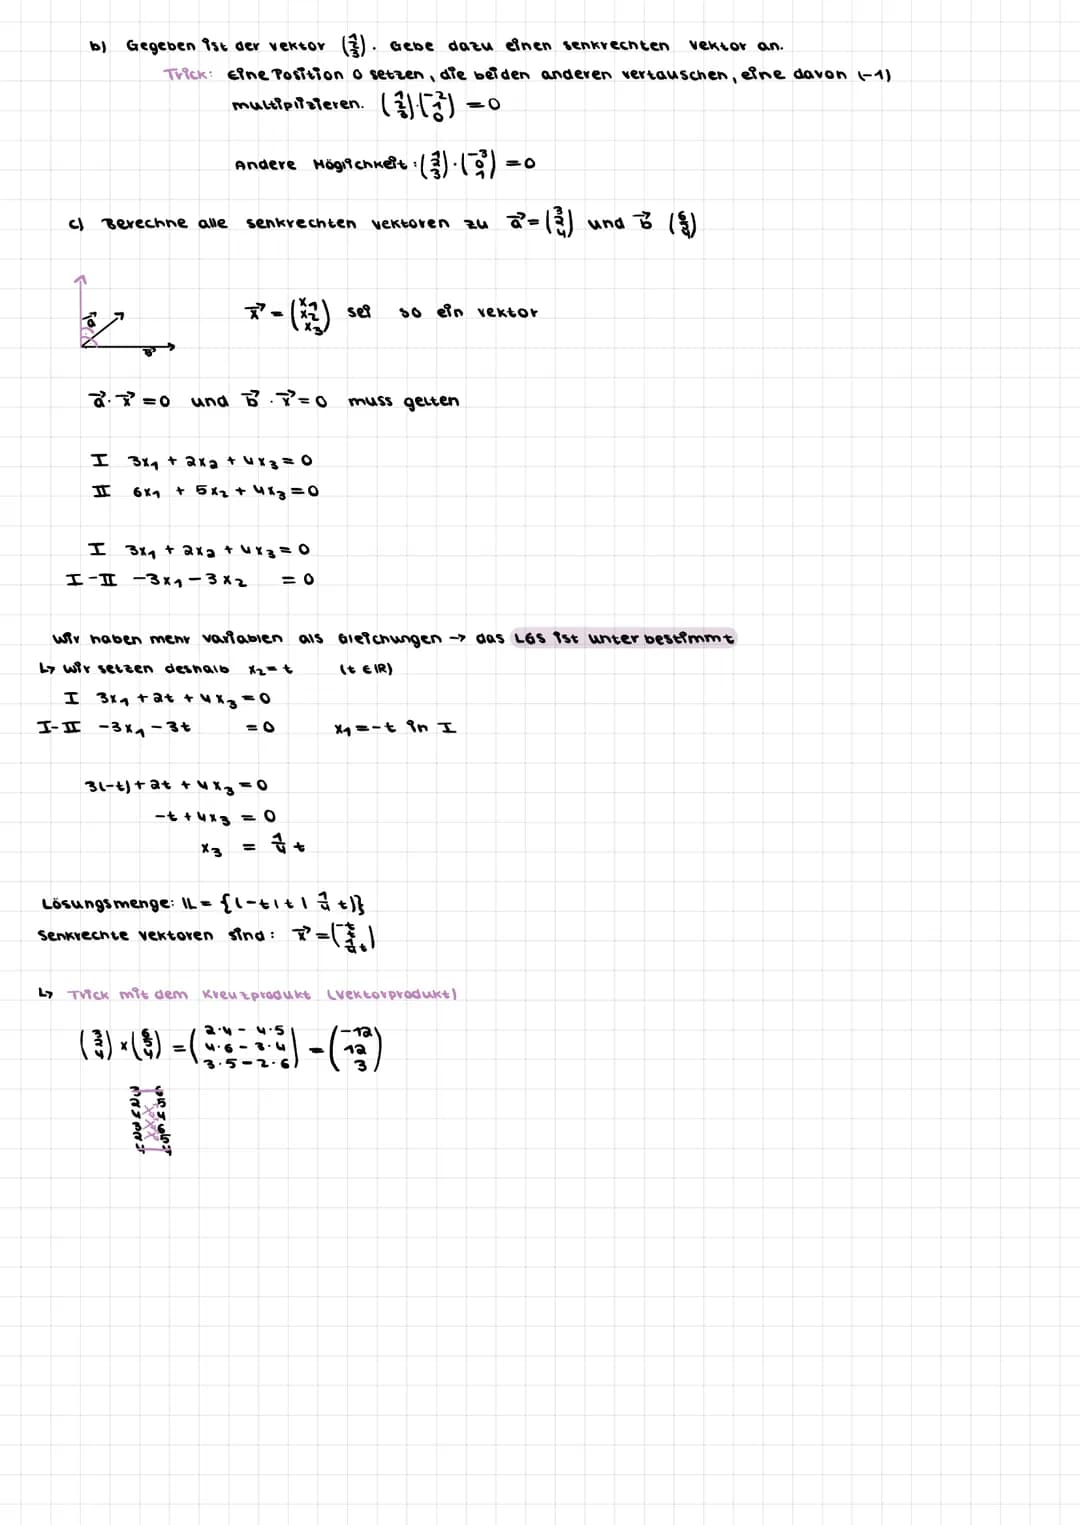 b) Gegeben ist der vektor (1 2 3). Gebe dazu einen senkrechten vektor an.
Trick: Eine Position 0 setzen, die beiden anderen vertauschen, eine davon (-1)
multiplizieren. (1 2 3)·(-2 1 0) = 0
Andere Möglichkeit: (1 2 3)·(-3 0 1) = 0
c) Berechne alle senkrechten vektoren zu a⃗ = (3 2 4) und b⃗ (6 5 4)
a⃗
b⃗
x⃗ = (x₁ x₂ x₃) sei so ein vektor
a⃗·x⃗ = 0 und b⃗·x⃗ = 0 muss gelten
I 3x₁ + 2x₂ + 4x₃ = 0
II 6x₁ + 5x₂ + 4x₃ = 0
I 3x₁ + 2x₂ + 4x₃ = 0
I-II -3x₁ - 3x₂ = 0
wir haben mehr variablen als Gleichungen → das LGS ist unter bestimmt
↳ wir setzen deshalb x₂ = t (t ∈ IR)
I 3x₁ + 2t + 4x₃ = 0
I-II -3x₁ - 3t = 0 x₁ = -t in I
3(-t) + 2t + 4x₃ = 0
-t + 4x₃ = 0
x₃ = 1/4 t
Lösungsmenge: IL = {(-t | t | 1/4 t)}
Senkrechte vektoren sind: x⃗ = (-t t 1/4 t)
↳ Trick mit dem Kreuzprodukt (Vektorprodukt)
(3 2 4) × (6 5 4) = (2·4 - 4·5 4·6 - 3·4 3·5 - 2·6) = (-12 12 3)